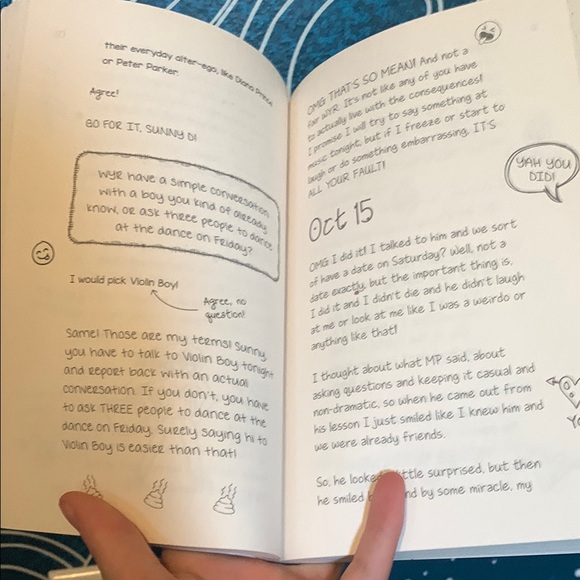 their everyday alter-ego, like Diana Prince
or Peter Parker.
Agree!
GO FOR IT, SUNNY D!
WYR have a simple conversation
with a boy you kind of already
know, or ask three people to dance
at the dance on Friday?
I would pick Violin Boy!
Agree, no
question!
Same! Those are my terms! Sunny,
you have to talk to Violin Boy tonight
and report back with an actual
conversation. If you don't, you have
to ask THREE people to dance at the
dance on Friday. Surely saying hi to
Violin Boy is easier than that!
OMG THAT'S SO MEAN! And not a
fair WYR. It's not like any of you have
to actually live with the consequences!
I promise I will try to say something at
music tonight, but if I freeze or start to
laugh or do something embarrassing, IT'S
ALL YOUR FAULT!
YAH YOU
DID!
Oct 15
OMG I did it! I talked to him and we sort
of have a date on Saturday? Well, not a
date exactly, but the important thing is,
I did it and I didn't die and he didn't laugh
at me or look at me like I was a weirdo or
anything like that!
I thought about what MP said, about
asking questions and keeping it casual and
non-dramatic, so when he came out from
his lesson I just smiled like I knew him and
we were already friends.
So, he looked little surprised, but then
he smiled and by some miracle, my